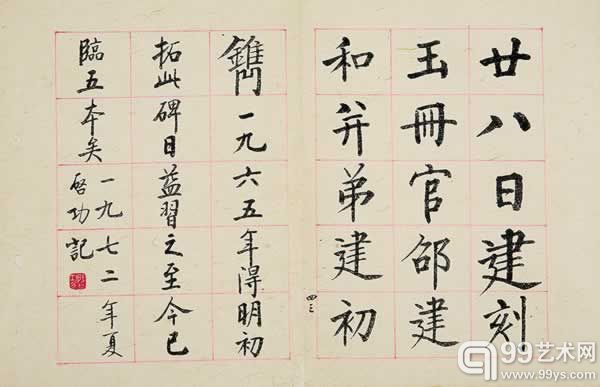 廿八日建刻
玉冊官邵建
和并弟建初
鐫
一九六五年得明初
拓此碑日益習之至今已
臨五本矣
一九七二年夏
啓功記
四三
99艺术网
www.99ys.com